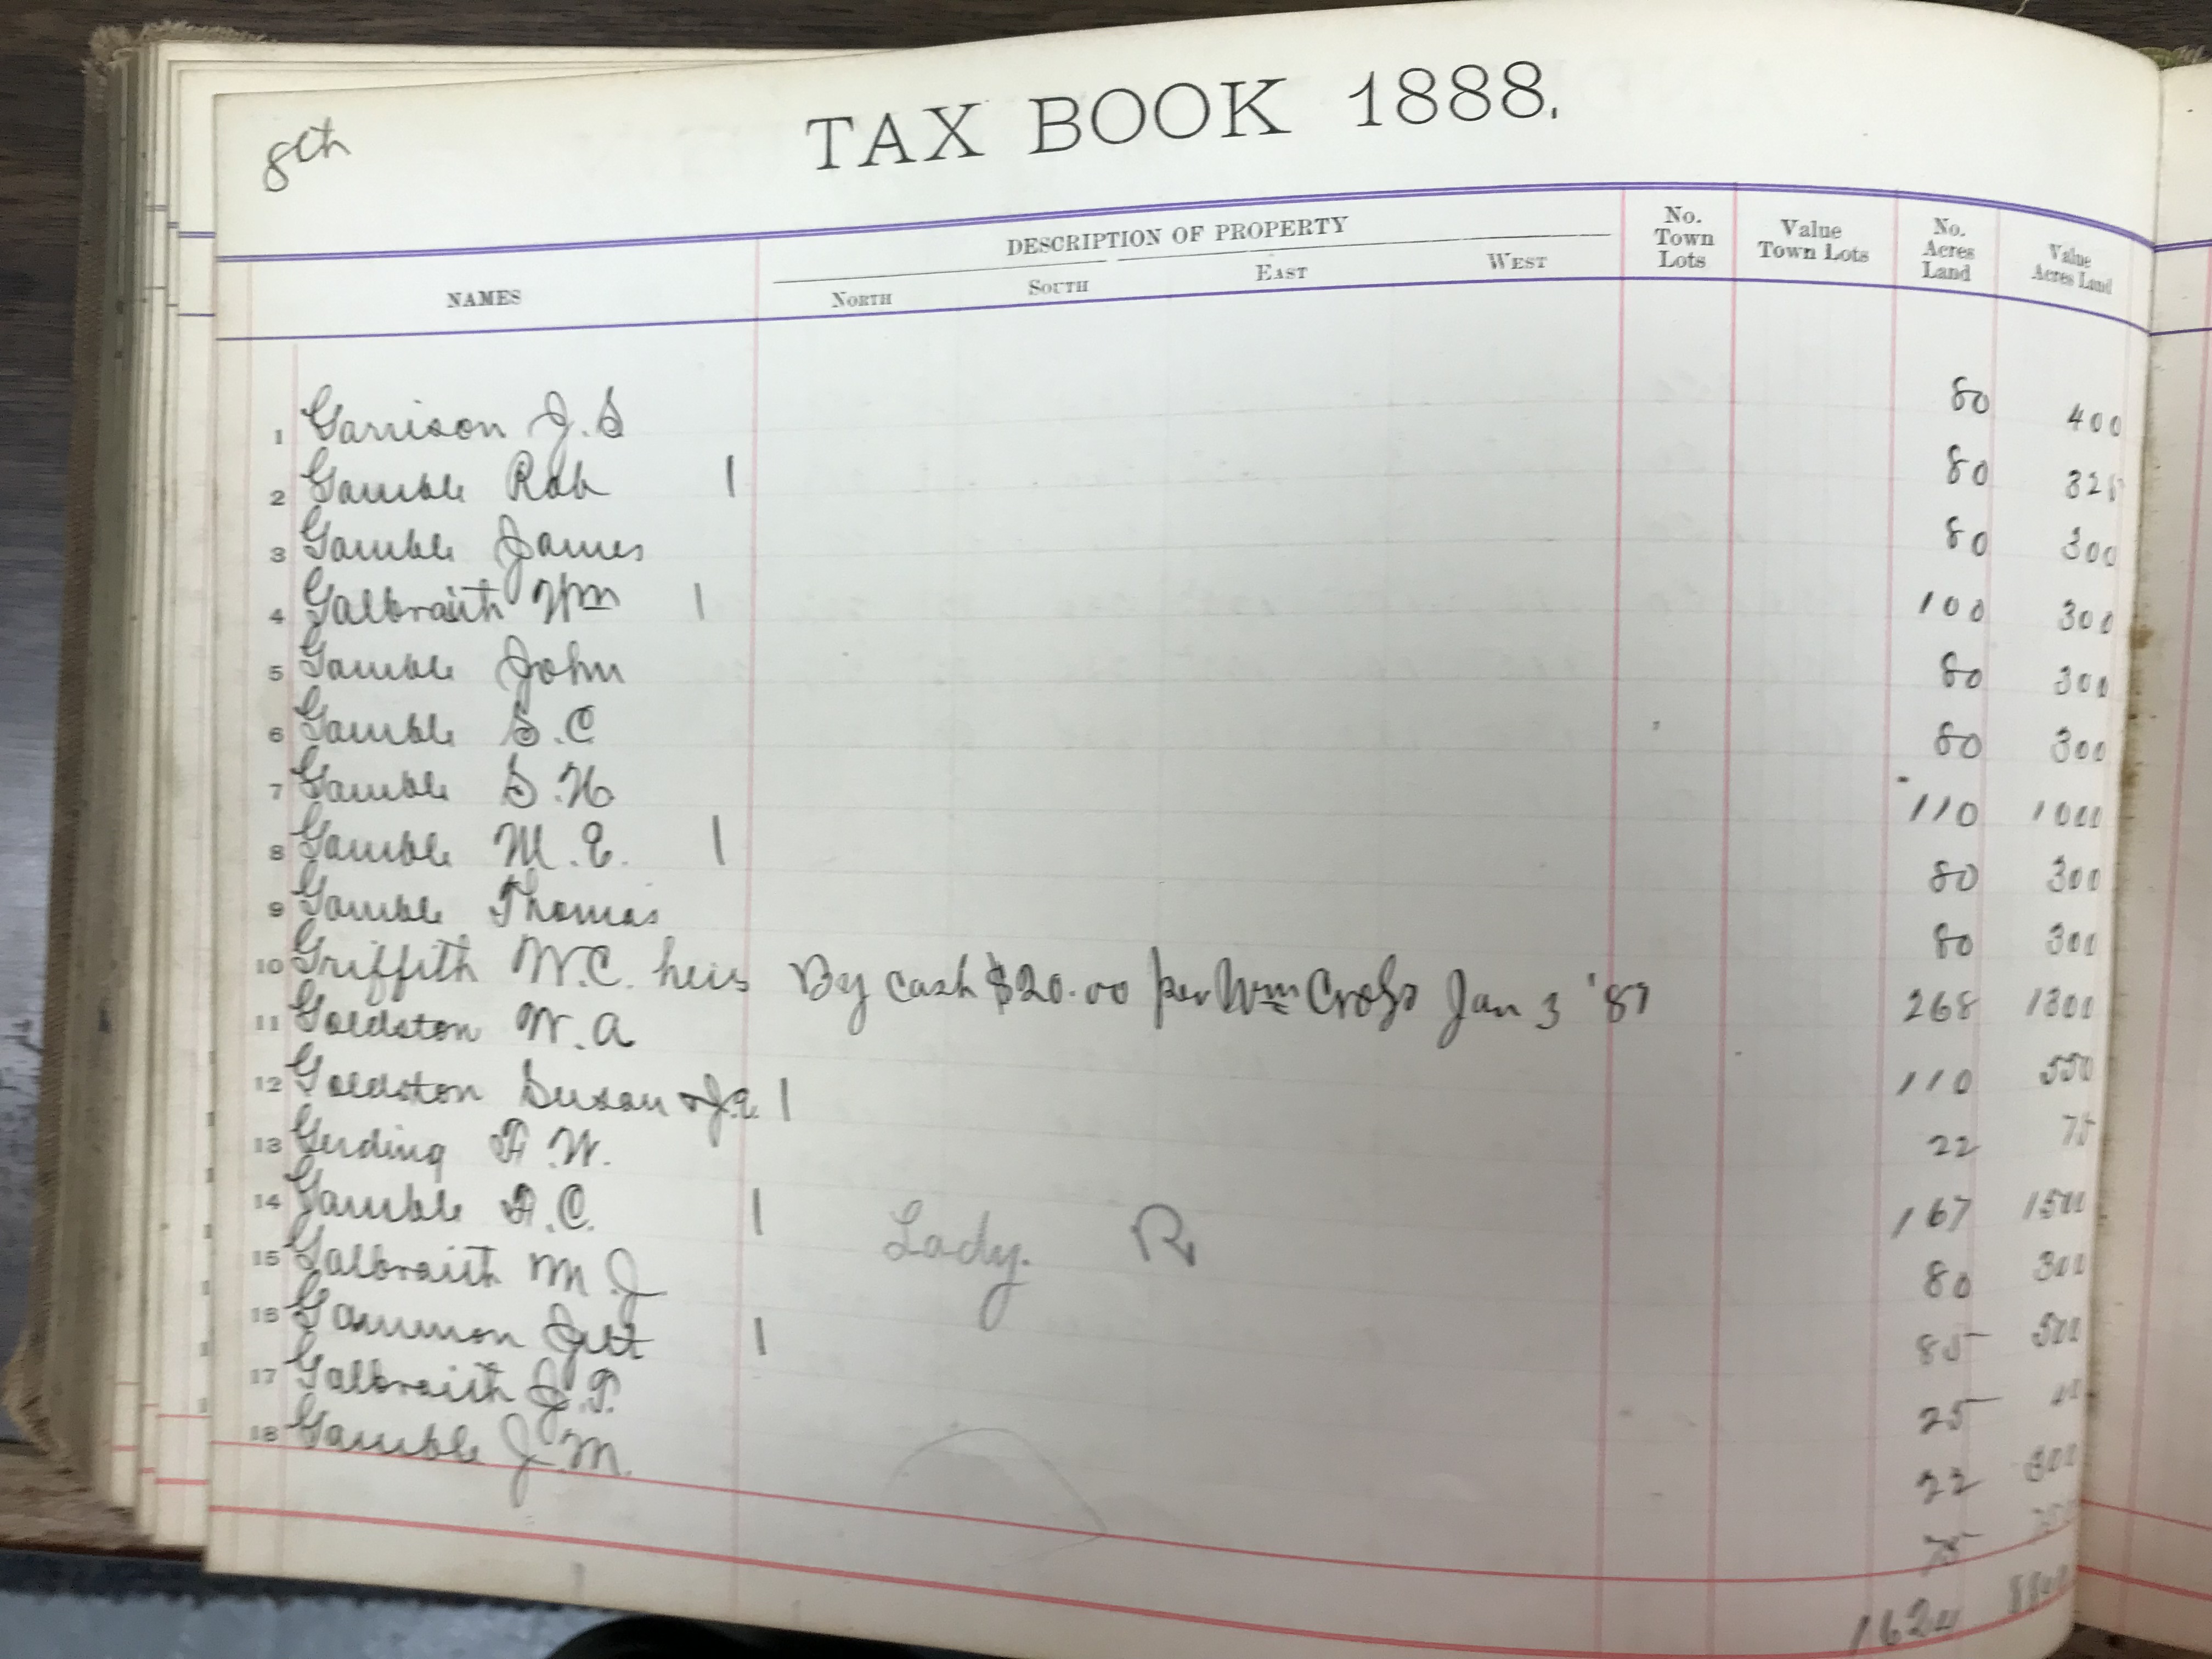 8th
TAX BOOK 1888.
NAMES
DESCRIPTION OF PROPERTY
NORTH SOUTH EAST WEST
No. Town Lots
Value Town Lots
No. Acres Land
Value Acres Land
1 Garrison J. S 80 400
2 Gamble Rob 1 80 325
3 Gamble James 80 300
4 Galbraith Wm 1 100 300
5 Gamble John 80 300
6 Gamble S. C 80 300
7 Gamble S. H 110 1000
8 Gamble M. E. 1 80 300
9 Gamble Thomas 80 300
10 Griffith W. C. heirs By Cash $20.00 per Wm Cross Jan 3 '87 268 1300
11 Goldston W. A 110 550
12 Goldston Susan & J. E. 1 22 75
13 Gerding F. W. 167 1500
14 Gamble A. C. 1 Lady. R 80 300
15 Galbraith M. J 85 500
16 Gammon 1 25
17 Galbraith J. P. 22 300
18 Gamble J. M. 75
1624